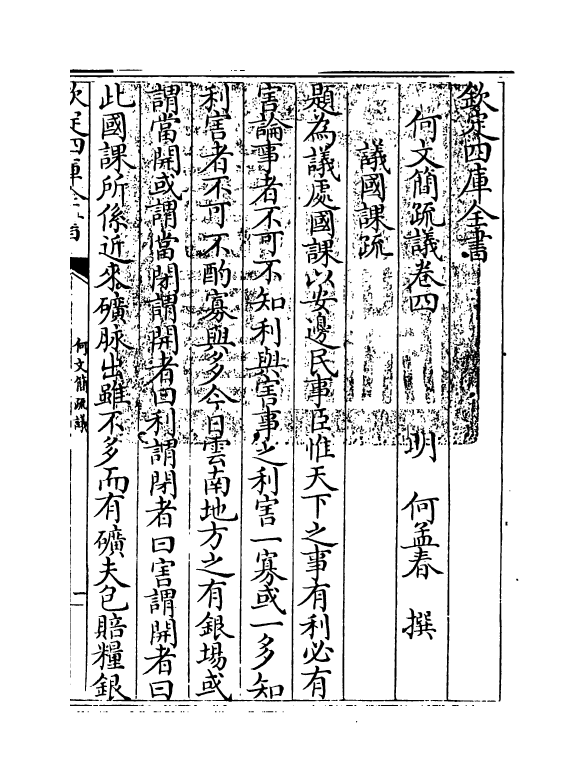 欽定四庫全書
何文簡疏議卷四
明 何孟春 撰
議國課疏
題為議處國課以安邊民事臣惟天下之事有利必有
害論事者不可不知利與害事之利害一寡或一多知
利害者不可不酌寡與多今日雲南地方之有銀場或
謂當開或謂當閉謂開者曰利謂閉者曰害謂開者曰
此國課所係近來礦脉出雖不多而有礦夫包賠糧銀
欽定四庫全書
何文簡疏議
一